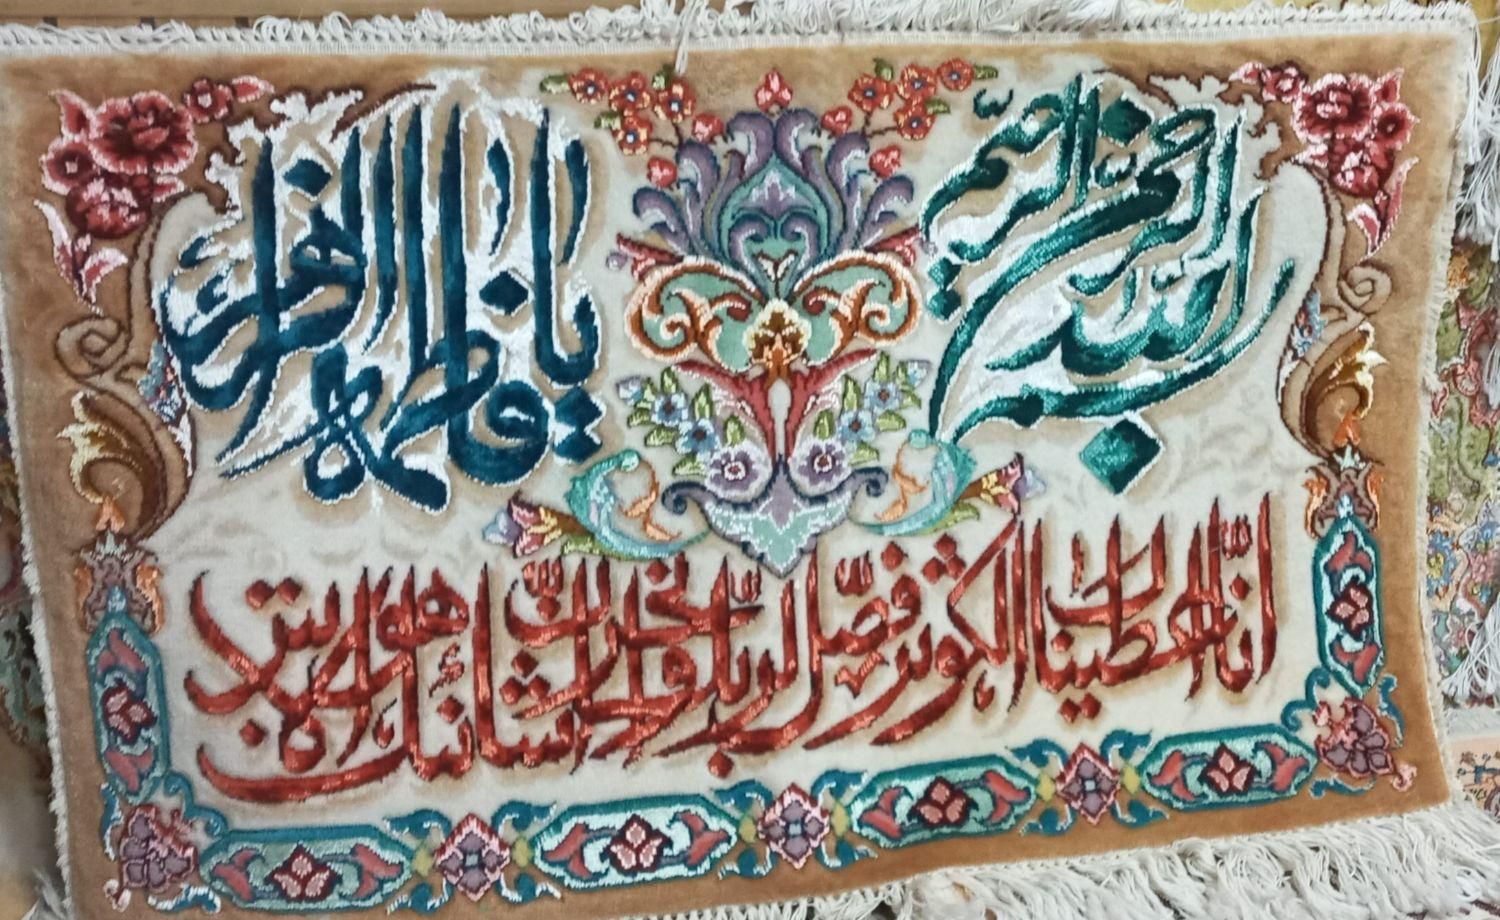 بسم الله الرحمن الرحیم
یا فاطمة الزهرا
انا اعطیناک الکوثر فصل لربک وانحر ان شانئک هو الابتر